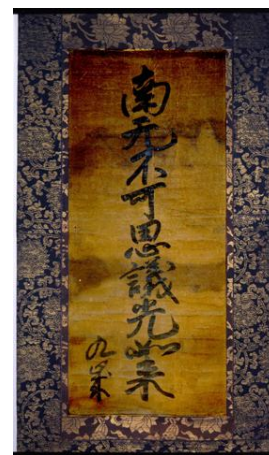 南无不可思議光如来